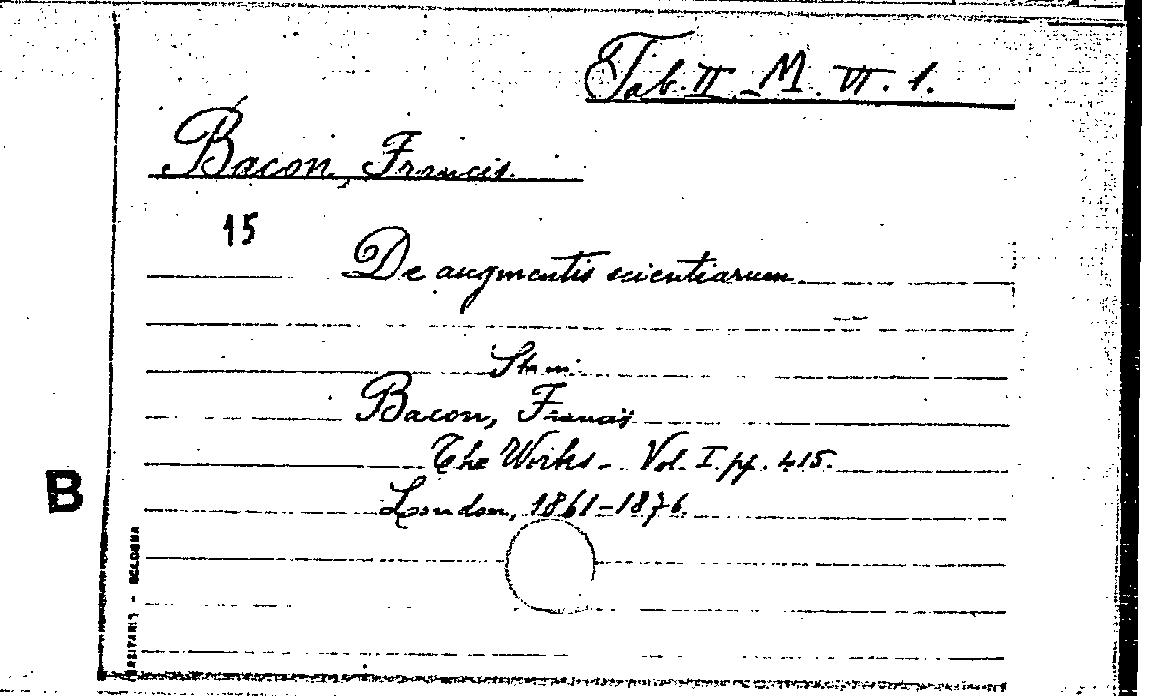 Tab. II. M. VI. 1.
Bacon, Francis.
15
De augmentis scientiarum
Sta in:
Bacon, Francis
The Works - Vol. I. pp. 415.
London, 1861-1876.
B
ERSITARIA - BOLOGNA